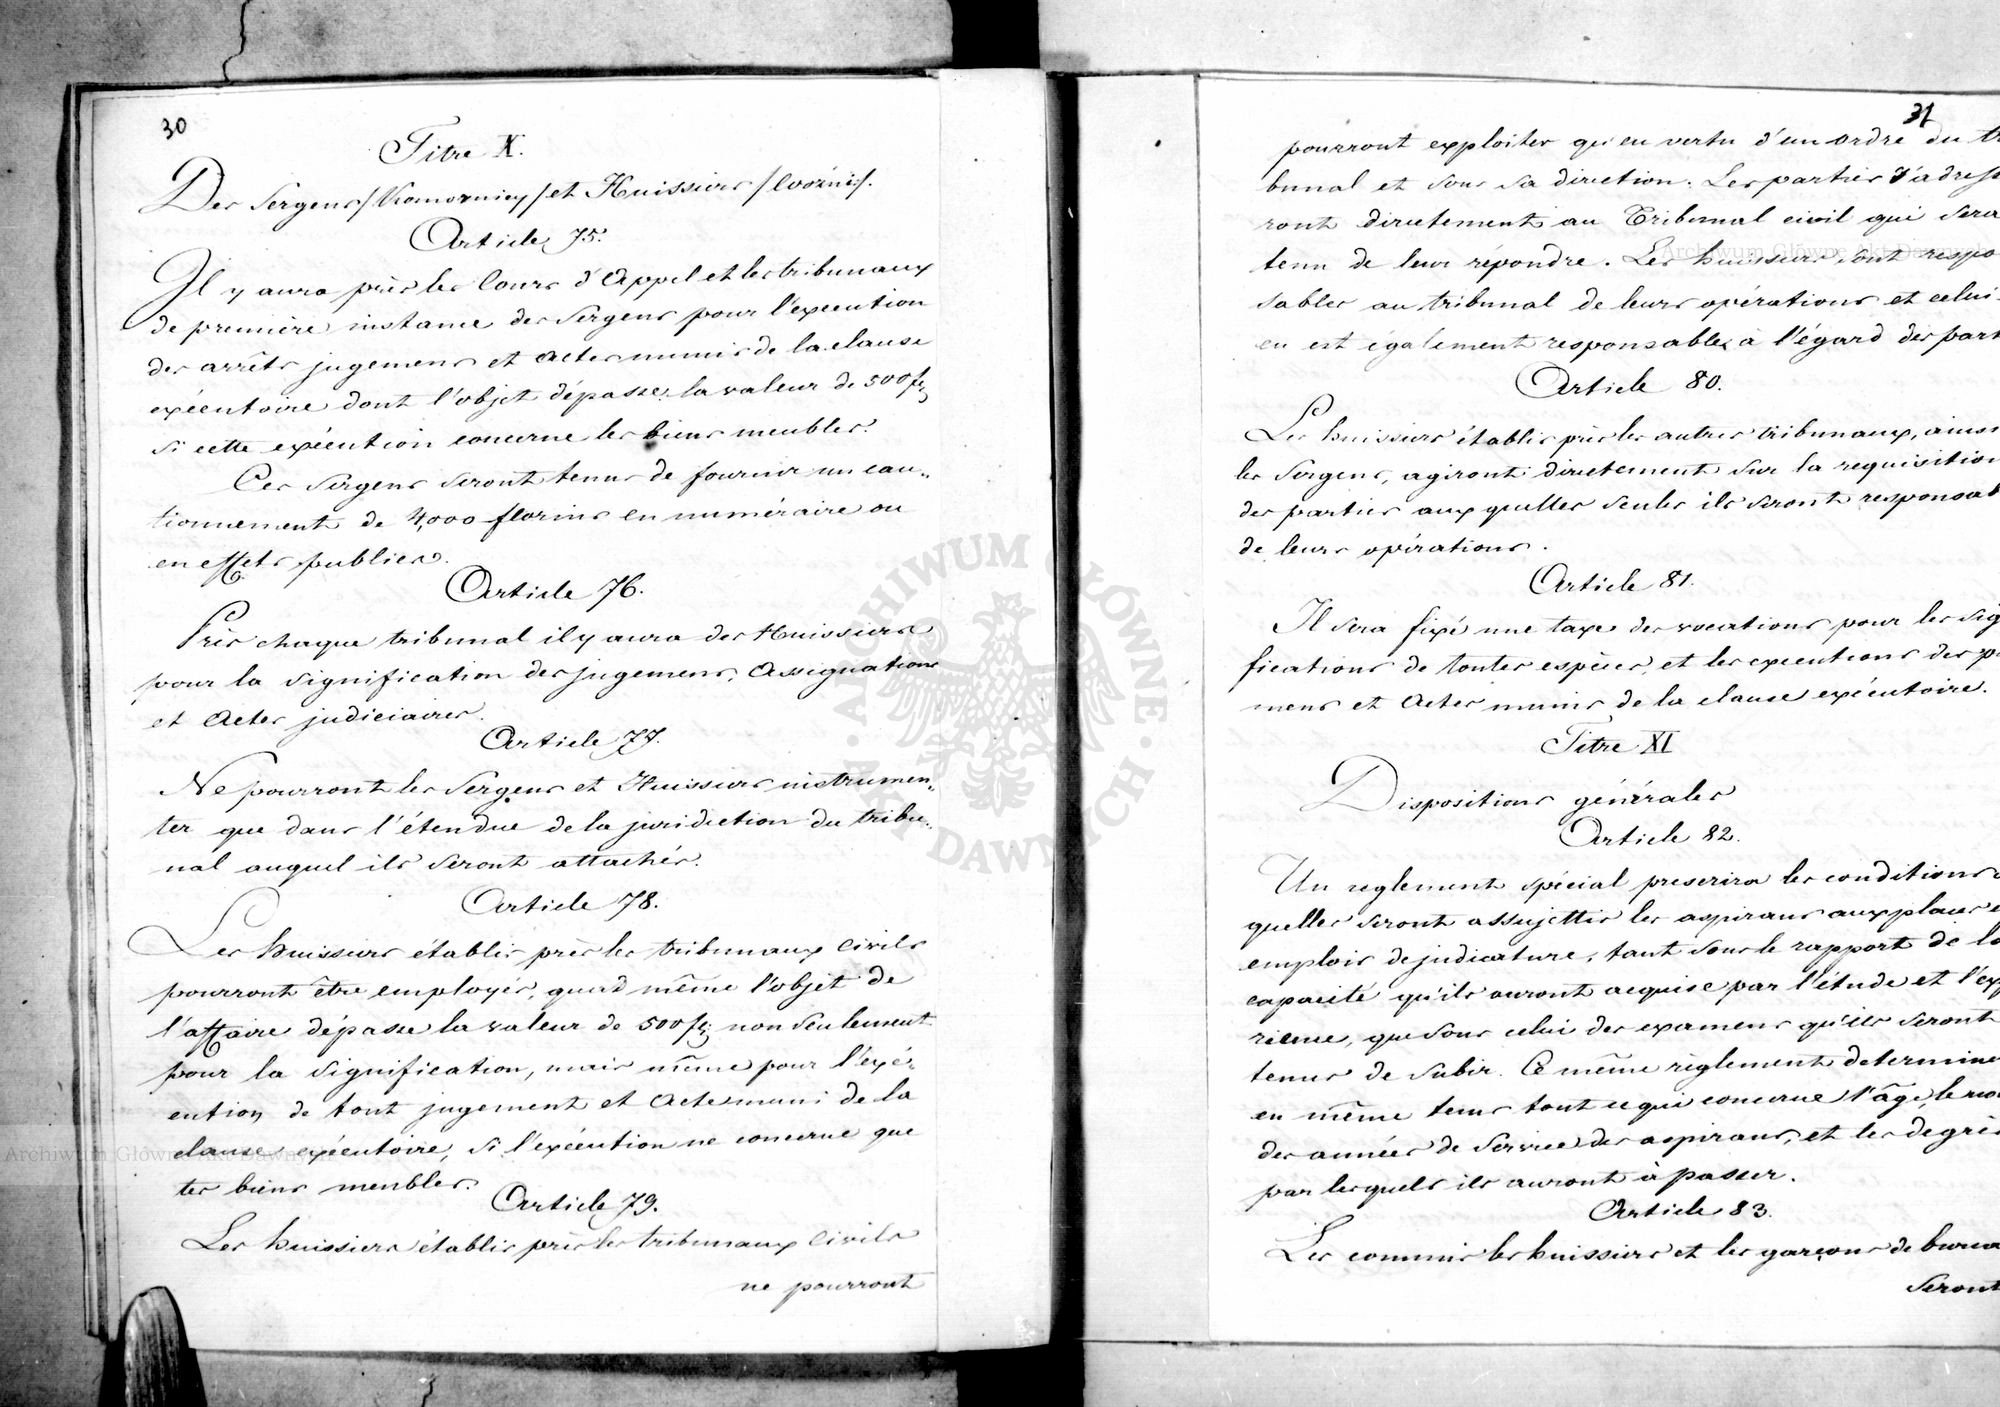 30
Titre X.
Des Sergens /Komornicy/ et Huissiers /Woźni/.
Article 75.
Il y aura près les Cours d'Appel et les tribunaux
de première instance des Sergens pour l'exécution
des arrêts jugemens et actes munis de la clause
exécutoire dont l'objet dépasse la valeur de 500 fr,
si cette exécution concerne les biens meubles.
Ces Sergens seront tenus de fournir un cau„
tionnement de 4,000 florins en numéraire ou
en effets publics.
Article 76.
Près chaque tribunal il y aura des Huissiers
pour la signification des jugemens, Assignations
et Actes judiciaires.
Article 77.
Ne pourront les Sergens et Huissiers instrumen„
ter que dans l'étendue de la juridiction du tribu„
nal auquel ils seront attachés.
Article 78.
Les huissiers établis près les tribunaux Civils
pourront être employés, quad même l'objet de
l'affaire dépasse la valeur de 500 fr; non seulement
pour la signification, mais même pour l'exé„
cution de tout jugement et Acte muni de la
clause exécutoire, si l'exécution ne concerne que
les biens meubles.
Article 79.
Les huissiers établis près les tribunaux Civils
ne pourront
31
pourront exploiter qu'en vertu d'un ordre du tri
bunal et sous sa direction. Les parties s'adresse
ront directement au Tribunal civil qui sera
tenu de leur répondre. Les huissiers sont respo
sables au tribunal de leurs opérations et celui-
en est également responsable à l'égard des part
Article 80.
Les huissiers établis près les autres tribunaux, ainsi
les Sergens, agiront directement sur la requisition
des parties aux quelles seules ils seront responsab
de leurs opérations.
Article 81.
Il sera fixé une taxe des vocations pour les sig
fications de toutes espèces, et les executions des ju
mens et Actes munis de la clause exécutoire.
Titre XI
Dispositions générales
Article 82.
Un reglement spécial prescrira les conditions a
quelles seront assujettis les aspirans aux places et
emplois de judicature, tant sous le rapport de la
capacité qu'ils auront acquise par l'étude et l'exp
rience, que sous celui des examens qu'ils seront
tenus de subir. Ce même règlement determine
en même tems tout ce qui concerne l'âge, le no
des années de service des aspirans, et les degrés
par lesquels ils auront à passer.
Article 83.
Les commis les huissiers et les garçons de burea
seront
ARCHIWUM GŁÓWNE AKT DAWNYCH
Archiwum Główne Akt Dawnych
Archiwum Główne Akt Dawnych